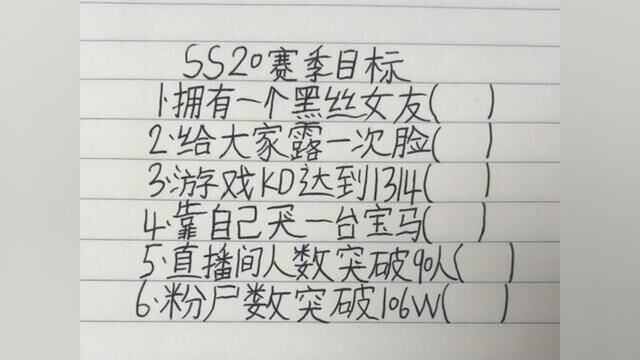 SS20赛季目标
1.拥有一个黑丝女友( )
2.给大家露一次脸( )
3.游戏KD达到1314( )
4.靠自己买一台宝马( )
5.直播间人数突破90人( )
6.粉尸数突破106W( )